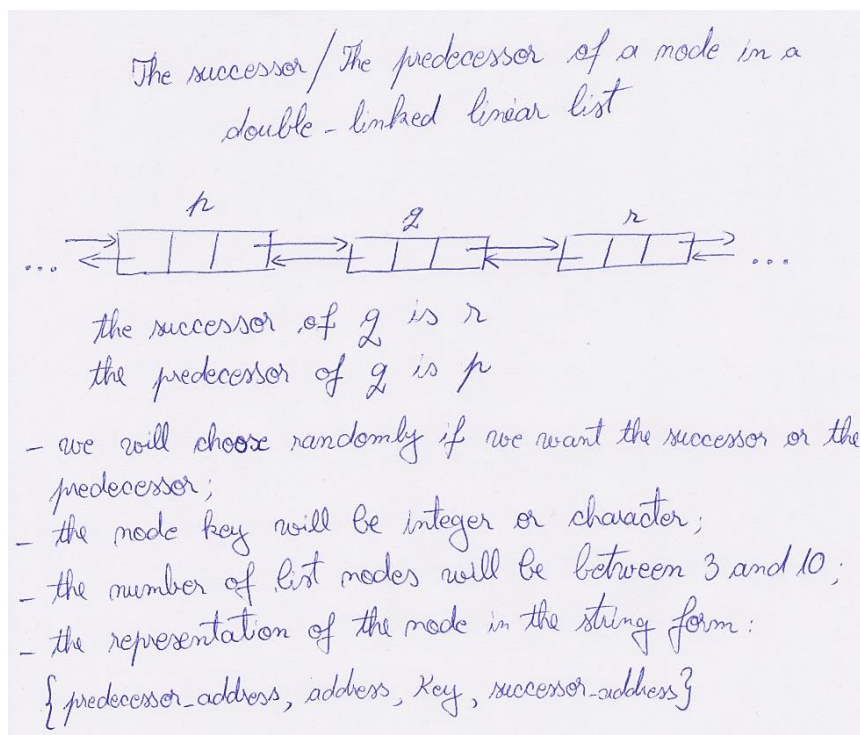 The successor/The predecessor of a node in a
double-linked linear list
p
q
r
...
...
the successor of q is r
the predecessor of q is p
- we will choose randomly if we want the successor or the
predecessor;
- the node key will be integer or character;
- the number of list nodes will be between 3 and 10;
- the representation of the node in the string form:
{predecessor_address, address, key, successor_address}